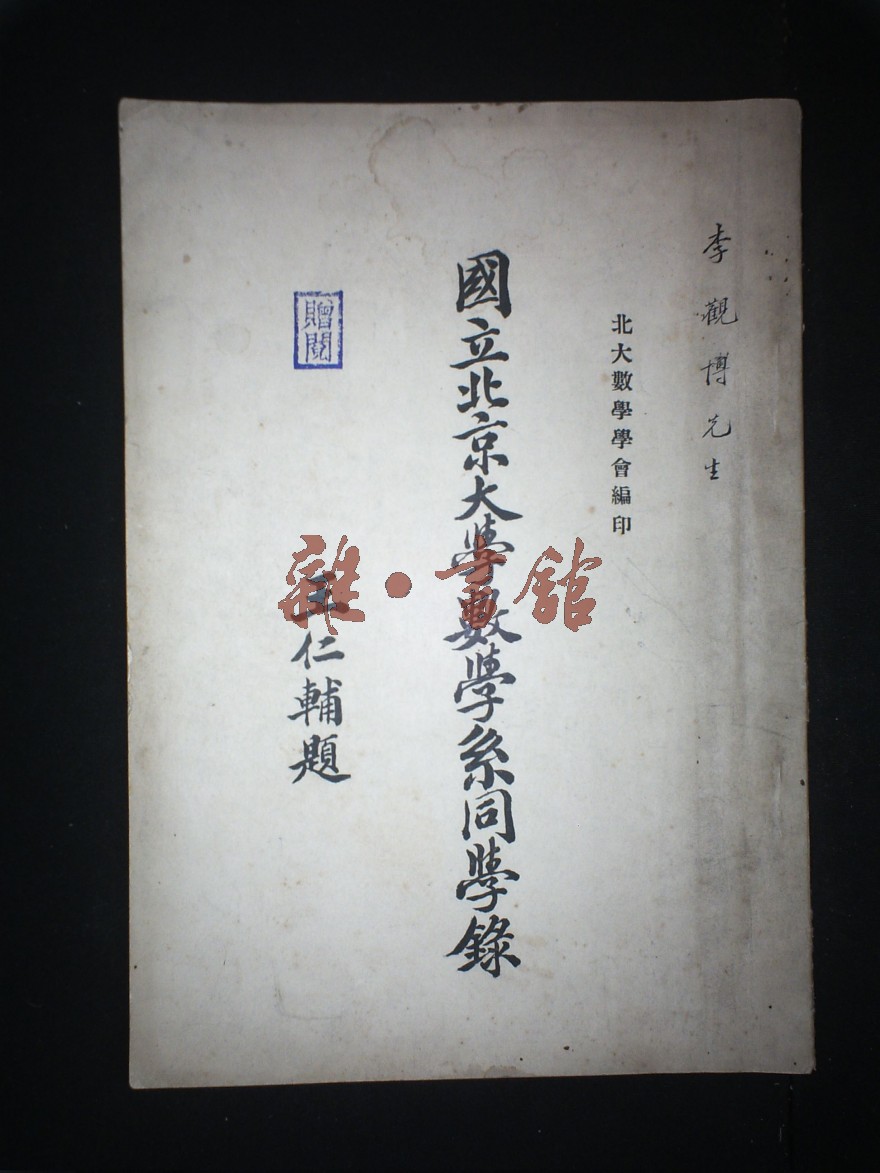 李觀博先生
北大數學學會編印
國立北京大學數學系同學錄
贈閱
王仁輔題
雜·書館